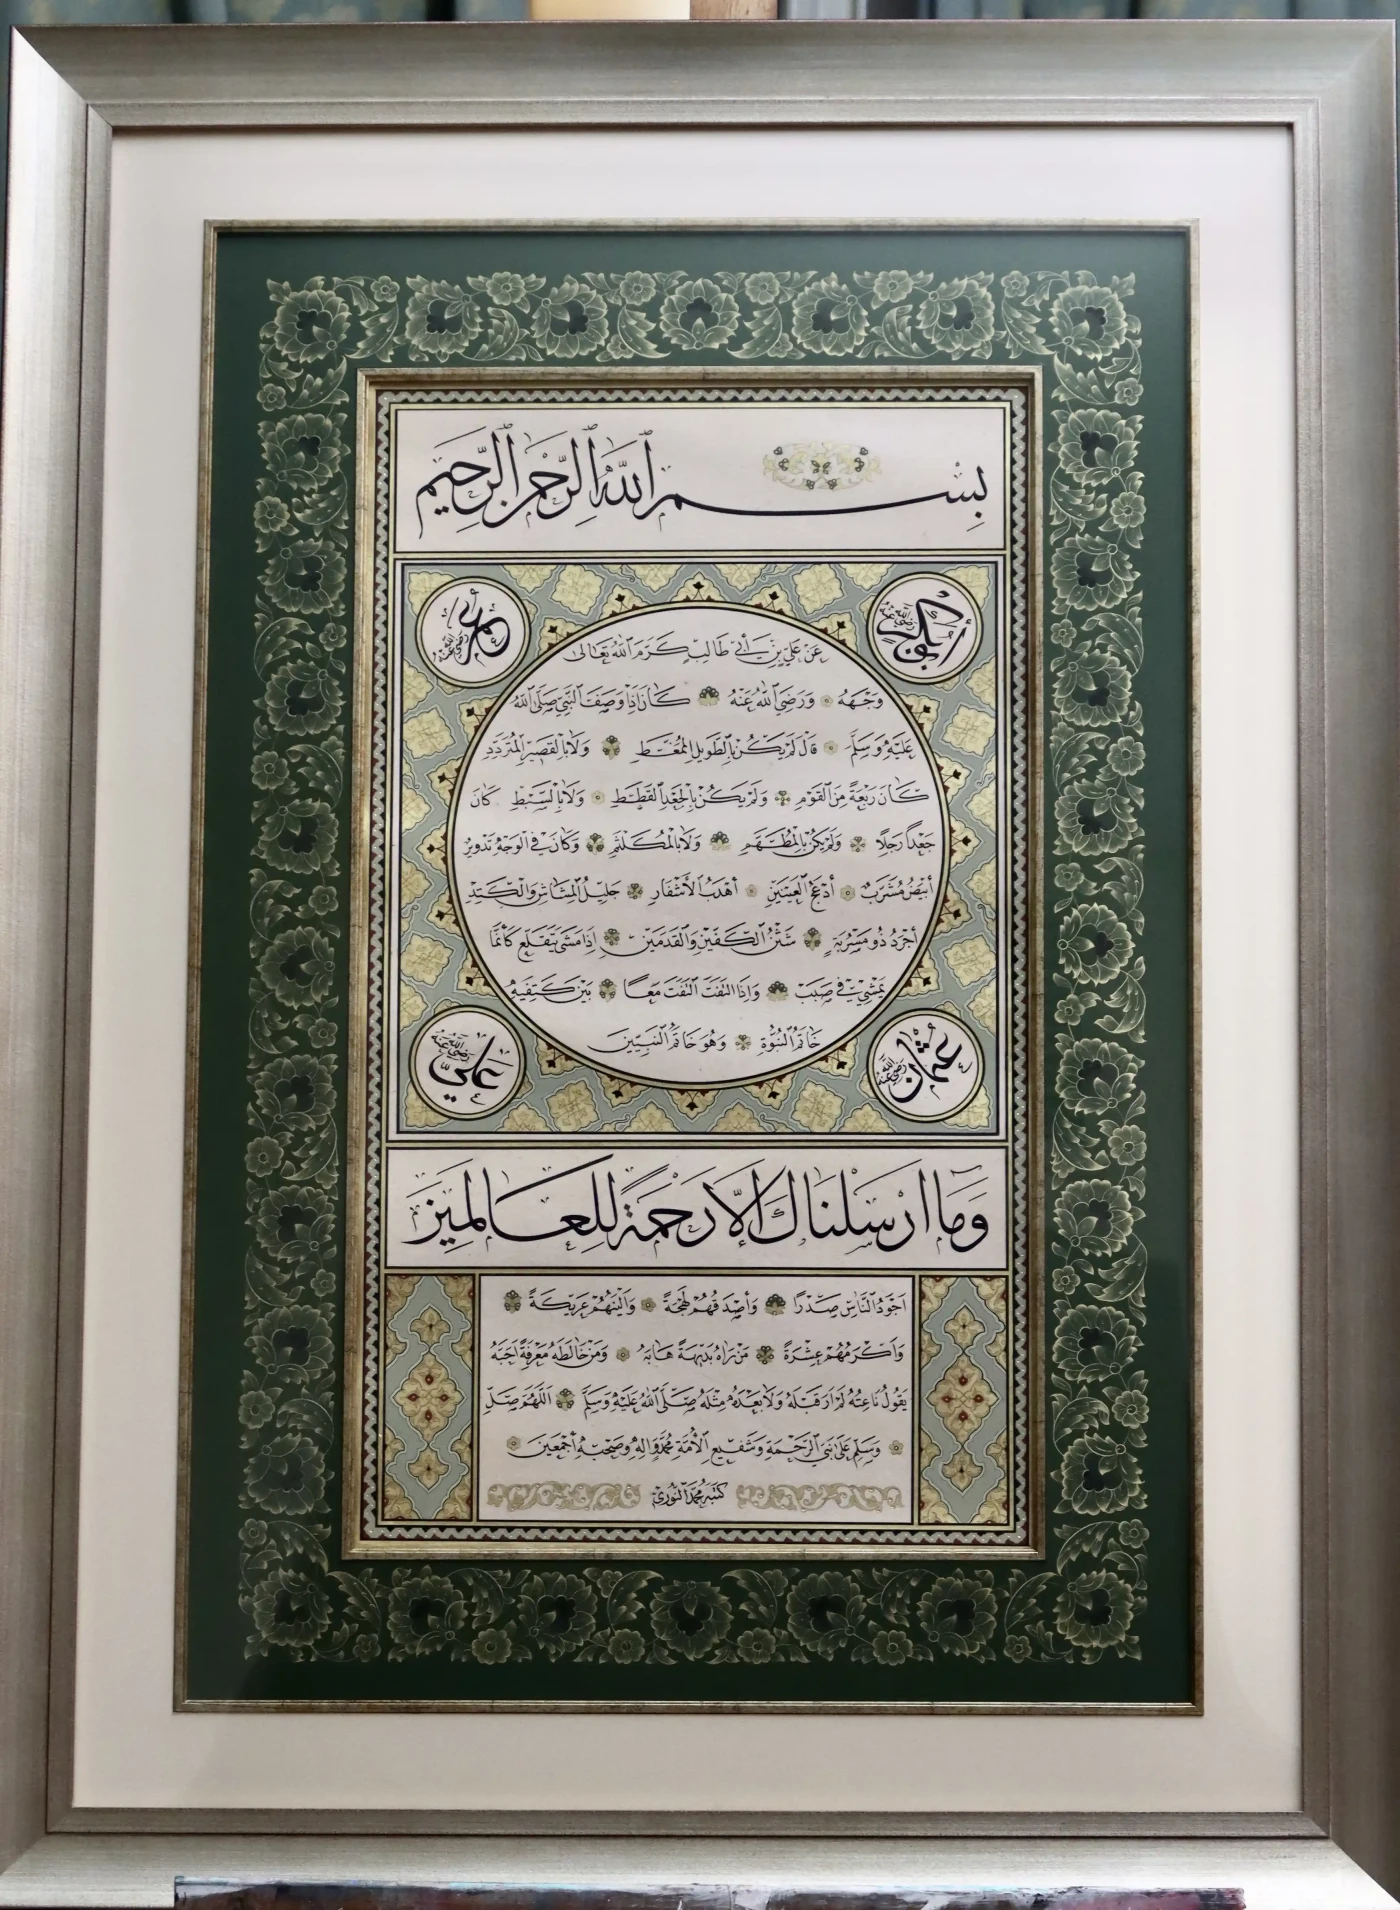 بِسْمِ اللهِ الرَّحْمٰنِ الرَّحِيمِ
أبو بكر رضي الله عنه
عمر رضي الله عنه
عَنْ عَلِيِّ بْنِ أَبِي طَالِبٍ كَرَّمَ اللهُ تَعَالَى
وَجْهَهُ وَرَضِيَ اللهُ عَنْهُ كَانَ إِذَا وَصَفَ النَّبِيَّ صَلَّى اللهُ
عَلَيْهِ وَسَلَّمَ قَالَ لَمْ يَكُنْ بِالطَّوِيلِ الْمُمَّغِطِ وَلَا بِالْقَصِيرِ الْمُتَرَدِّدِ
كَانَ رَبْعَةً مِنَ الْقَوْمِ وَلَمْ يَكُنْ بِالْجَعْدِ الْقَطَطِ وَلَا بِالسَّبْطِ كَانَ
جَعْداً رَجِلًا وَلَمْ يَكُنْ بِالْمُطَهَّمِ وَلَا بِالْمُكَلْثَمِ وَكَانَ فِي الْوَجْهِ تَدْوِيرٌ
أَبْيَضُ مُشْرَبٌ أَدْعَجُ الْعَيْنَيْنِ أَهْدَبُ الْأَشْفَارِ جَلِيلُ الْمُشَاشِ وَالْكَتَدِ
أَجْرَدُ ذُو مَسْرُبَةٍ شَثْنُ الْكَفَّيْنِ وَالْقَدَمَيْنِ إِذَا مَشَى يَتَقَلَّعُ كَأَنَّمَا
يَمْشِي فِي صَبَبٍ وَإِذَا الْتَفَتَ الْتَفَتَ مَعًا بَيْنَ كَتِفَيْهِ
خَاتَمُ النُّبُوَّةِ وَهُوَ خَاتَمُ النَّبِيِّينَ
عثمان رضي الله عنه
علي رضي الله عنه
وَمَا أَرْسَلْنَاكَ إِلَّا رَحْمَةً لِلْعَالَمِينَ
أَجْوَدُ النَّاسِ صَدْرًا وَأَصْدَقُهُمْ لَهْجَةً وَأَلْيَنُهُمْ عَرِيكَةً
وَأَكْرَمُهُمْ عِشْرَةً مَنْ رَآهُ بَدِيهَةً هَابَهُ وَمَنْ خَالَطَهُ مَعْرِفَةً أَحَبَّهُ
يَقُولُ نَاعِتُهُ لَمْ أَرَ قَبْلَهُ وَلَا بَعْدَهُ مِثْلَهُ صَلَّى اللهُ عَلَيْهِ وَسَلَّمَ اَللّٰهُمَّ صَلِّ
وَسَلِّمْ عَلَى نَبِيِّ الرَّحْمَةِ وَشَفِيعِ الْأُمَّةِ مُحَمَّدٍ وَآلِهِ وَصَحْبِهِ أَجْمَعِينَ
كتبه محمد النوري